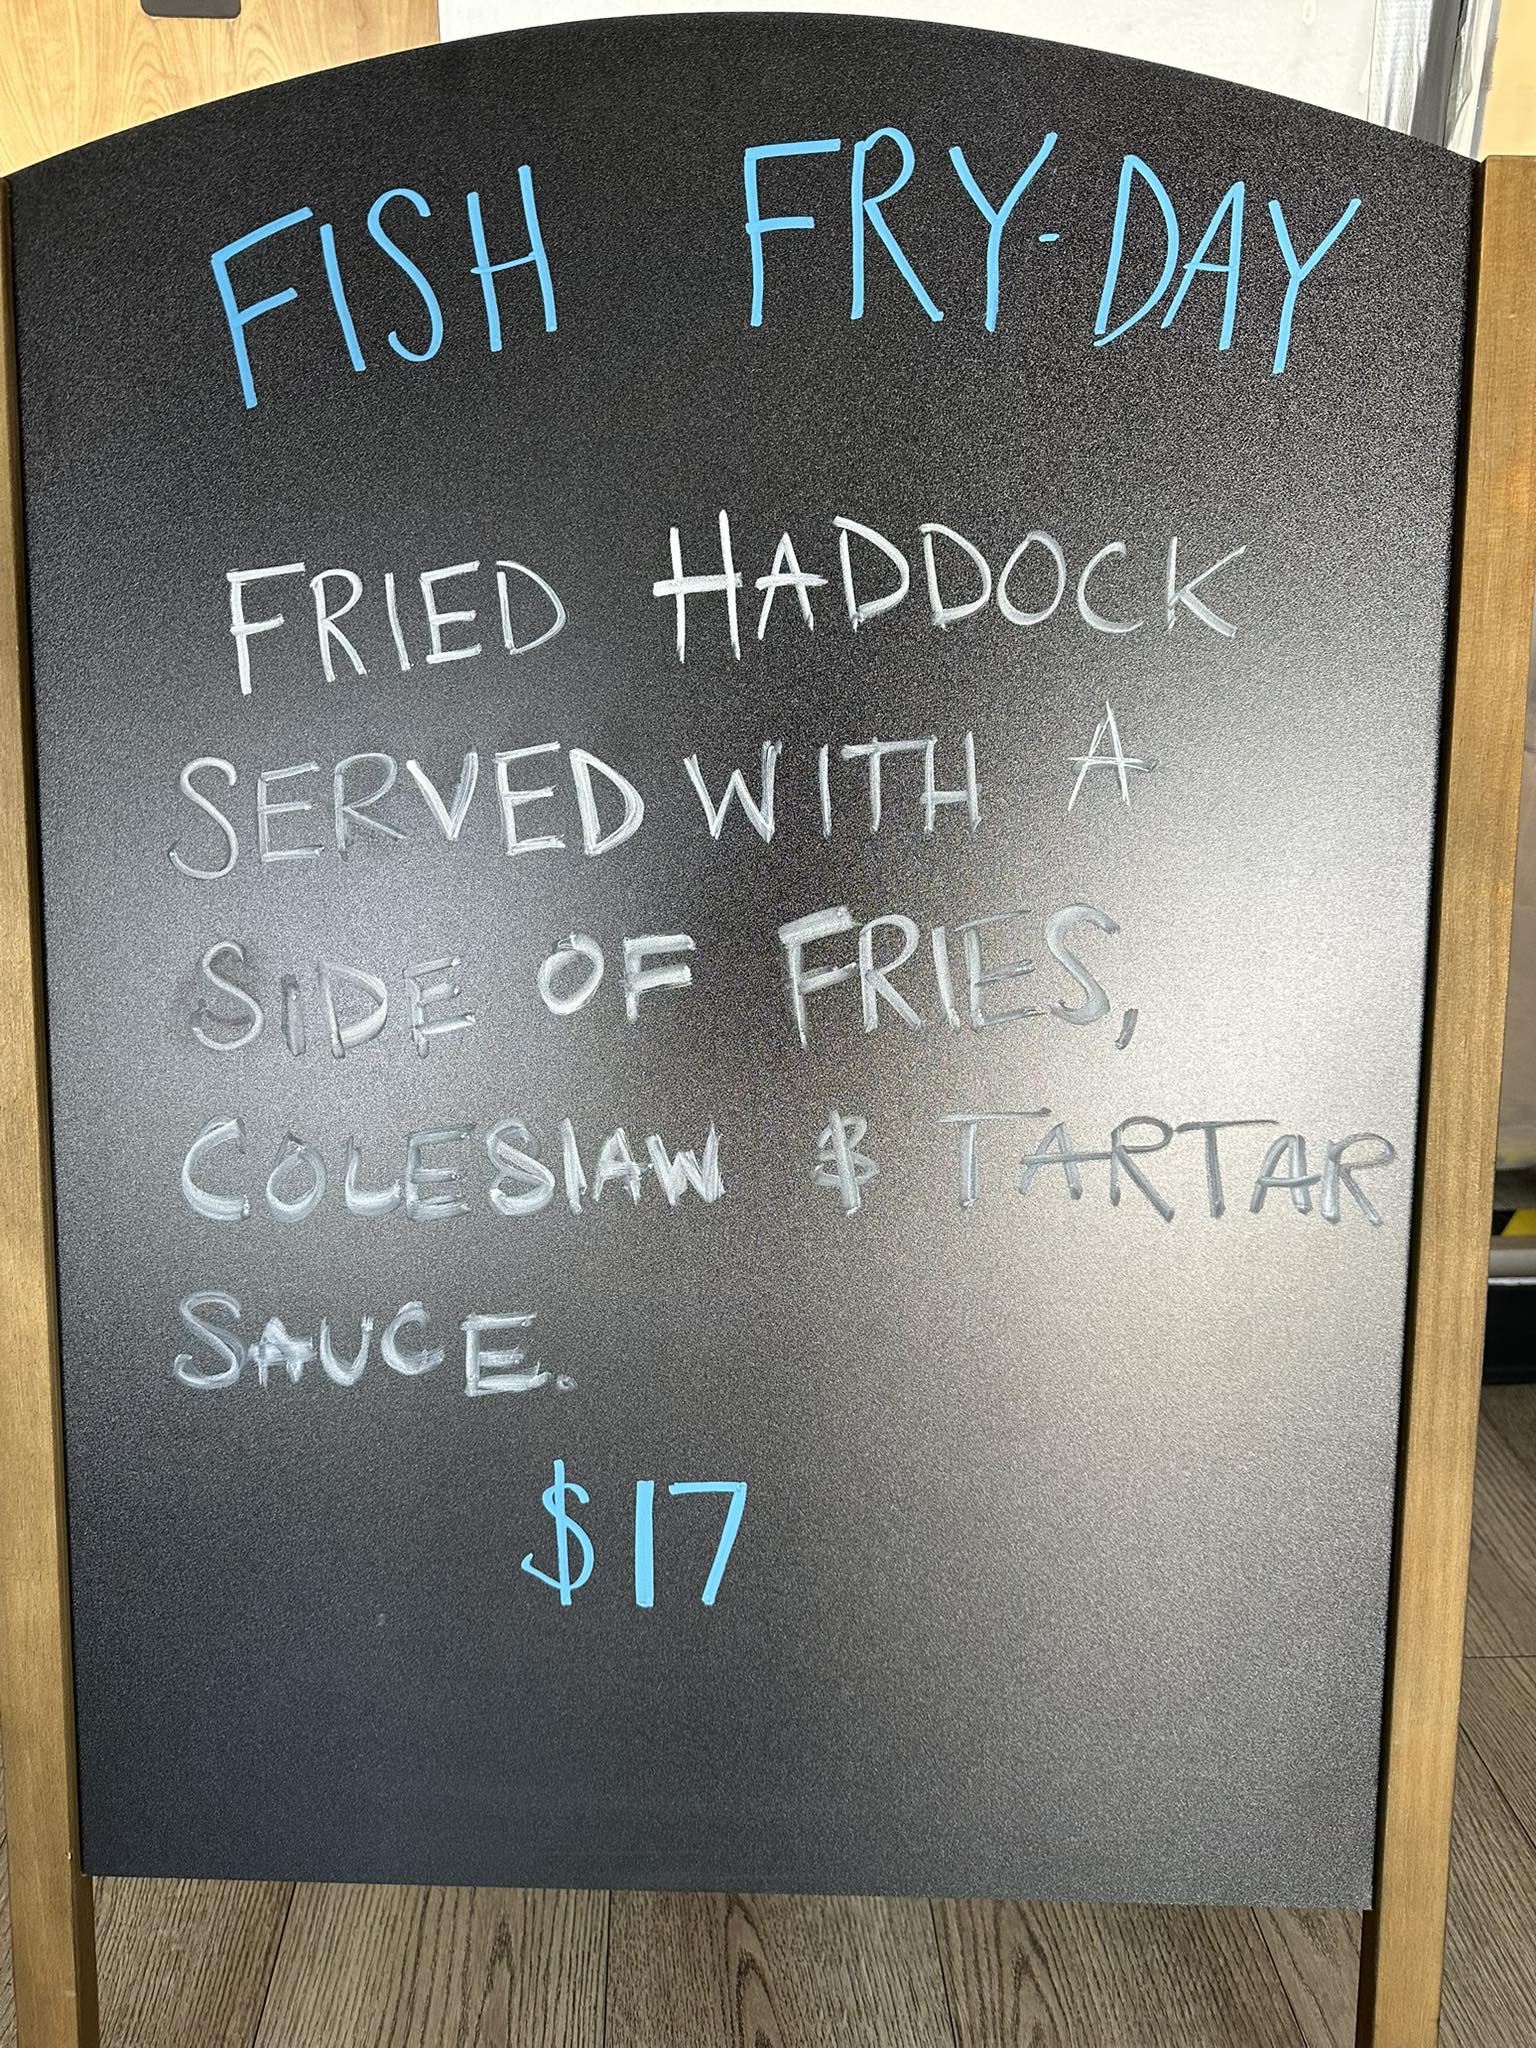 FISH FRY-DAY
FRIED HADDOCK
SERVED WITH A
SIDE OF FRIES,
COLESlAW & TARTAR
SAUCE.
$17